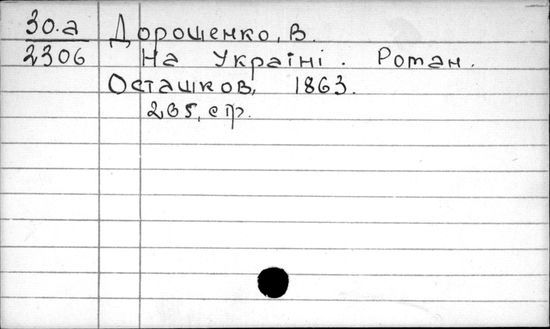 30.а
2306
Дорошенко, В.
На Україні. Роман.
Осташков, 1863.
265, стр.